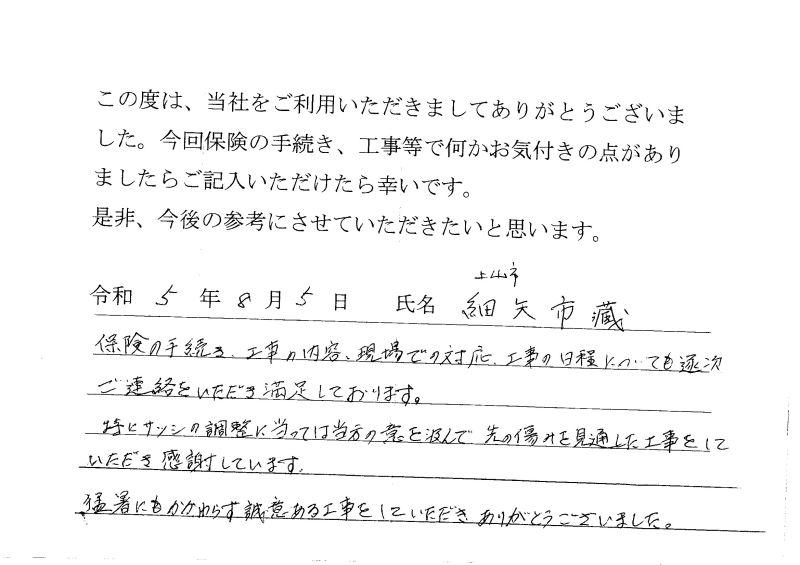 この度は、当社をご利用いただきましてありがとうございま
した。今回保険の手続き、工事等で何かお気付きの点があり
ましたらご記入いただけたら幸いです。
是非、今後の参考にさせていただきたいと思います。
上山市
令和 5 年 8 月 5 日 氏名 細矢市蔵
保険の手続き、工事の内容、現場での対応、工事の日程についても逐次
ご連絡をいただき満足しております。
特にサッシの調整に当っては当方の意を汲んで先の傷みを見通した工事をして
いただき感謝しています。
猛暑にもかかわらず誠意ある工事をしていただきありがとうございました。